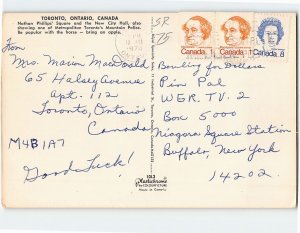 TORONTO, ONTARIO, CANADA
Nathan Phillips' Square and the New City Hall, also
showing one of Metropolitan Toronto's Mountie Police.
Be popular with the horse — bring an apple.
SR
75
Canada 1
Canada 1
Canada 8
From
Mrs. Marion MacDonald
65 Halsey Avenue
Apt. 112
Toronto, Ontario
Canada
M4B 1A7
Good Luck!
Bowling for Dollars
Pin Pal
WGR. TV. 2
Box 5000
Niagara Square Station
Buffalo, New York
14202.
Plastichrome
Made in Canada